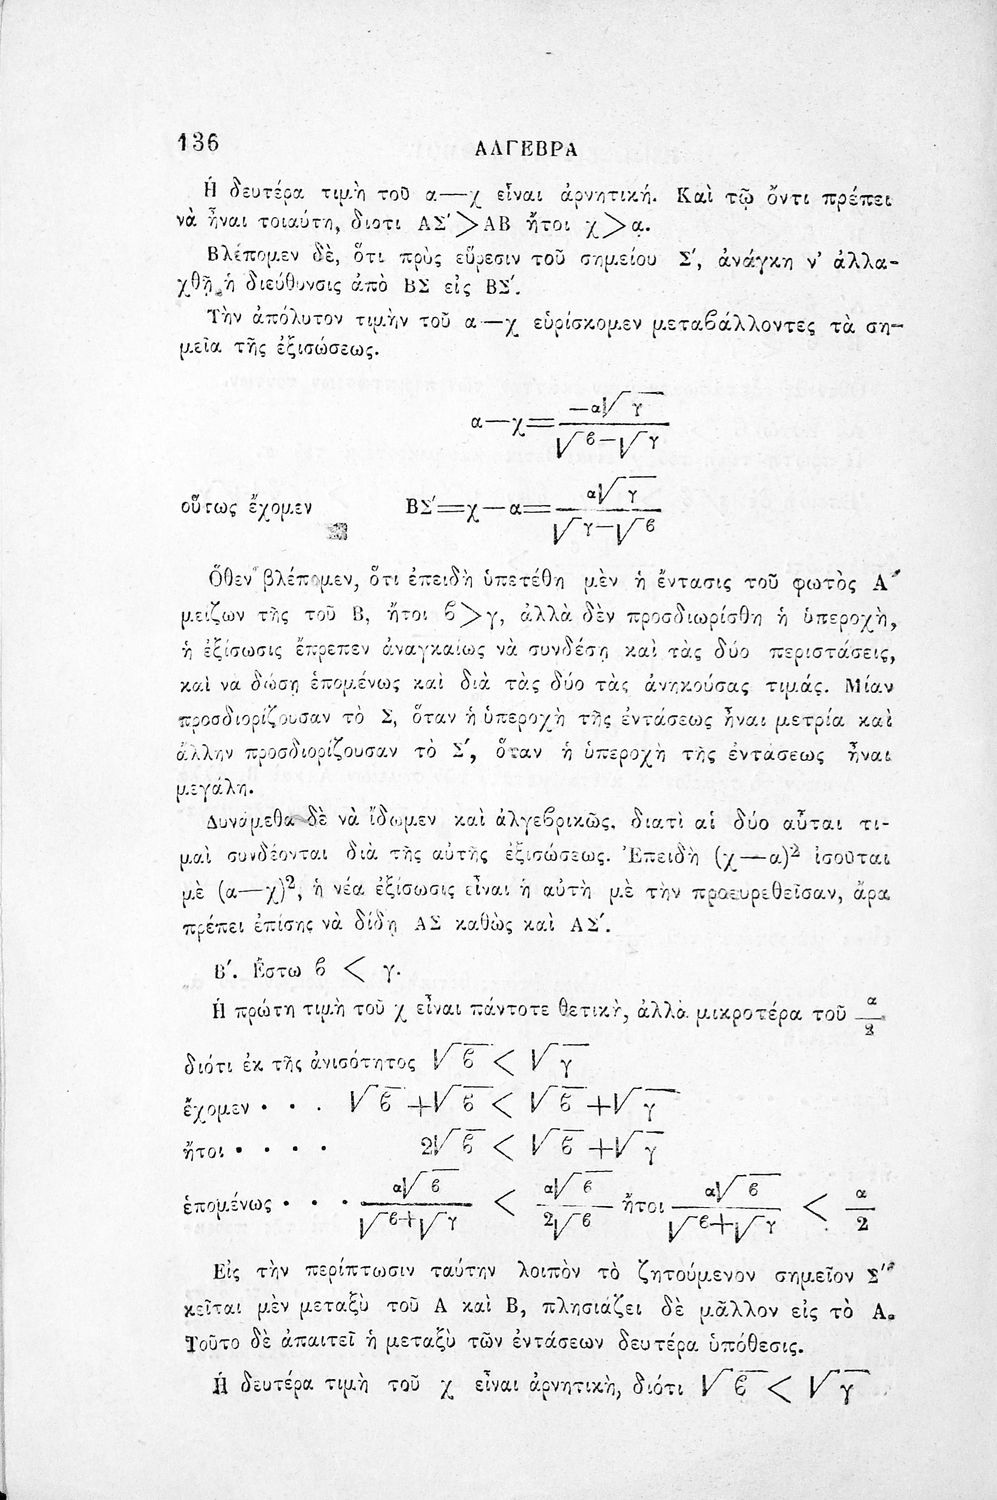 136 ΑΛΓΕΒΡΑ
Ἡ δευτέρα τιμὴ τοῦ α—χ εἶναι ἀρνητική. Καὶ τῷ ὄντι πρέπει
νὰ ἦναι τοιαύτη, διοτι ΑΣ′ > ΑΒ ἤτοι χ > α.
Βλέπομεν δὲ, ὅτι πρὸς εὕρεσιν τοῦ σημείου Σ′, ἀνάγκη ν' ἀλλα-
χθῇ ἡ διεύθυνσις ἀπὸ ΒΣ εἰς ΒΣ′.
Τὴν ἀπόλυτον τιμὴν τοῦ α—χ εὑρίσκομεν μεταβάλλοντες τὰ ση-
μεῖα τῆς ἐξισώσεως.
α—χ = —α√γ / √β—√γ
οὕτως ἔχομεν ΒΣ′ = χ—α = α√γ / √γ—√β
Ὅθεν βλέπομεν, ὅτι ἐπειδὴ ὑπετέθη μὲν ἡ ἔντασις τοῦ φωτὸς Α
μείζων τῆς τοῦ Β, ἤτοι β > γ, ἀλλὰ δὲν προσδιωρίσθη ἡ ὑπεροχὴ,
ἡ ἐξίσωσις ἔπρεπεν ἀναγκαίως νὰ συνδέσῃ καὶ τὰς δύο περιστάσεις,
καὶ νὰ δώσῃ ἑπομένως καὶ διὰ τὰς δύο τὰς ἀνηκούσας τιμάς. Μίαν
προσδιορίζουσαν τὸ Σ, ὅταν ἡ ὑπεροχὴ τῆς ἐντάσεως ἦναι μετρία καὶ
ἄλλην προσδιορίζουσαν τὸ Σ′, ὅταν ἡ ὑπεροχὴ τῆς ἐντάσεως ἦναι
μεγάλη.
Δυνάμεθα δὲ νὰ ἴδωμεν καὶ ἀλγεβρικῶς. διατὶ αἱ δύο αὗται τι-
μαὶ συνδέονται διὰ τῆς αὐτῆς ἐξισώσεως. Ἐπειδὴ (χ—α)² ἰσοῦται
μὲ (α—χ)², ἡ νέα ἐξίσωσις εἶναι ἡ αὐτὴ μὲ τὴν προευρεθεῖσαν, ἄρα
πρέπει ἐπίσης νὰ δίδῃ ΑΣ καθὼς καὶ ΑΣ′.
Β′. Ἔστω β < γ.
Ἡ πρώτη τιμὴ τοῦ χ εἶναι πάντοτε θετικὴ, ἀλλὰ μικροτέρα τοῦ α/2
διότι ἐκ τῆς ἀνισότητος √β < √γ
ἔχομεν . . . √β + √β < √β + √γ
ἤτοι . . . . 2√β < √β + √γ
ἑπομένως . . . α√β / √β+√γ < α√β / 2√β ἤτοι α√β / √β+√γ < α/2
Εἰς τὴν περίπτωσιν ταύτην λοιπὸν τὸ ζητούμενον σημεῖον Σ″
κεῖται μὲν μεταξὺ τοῦ Α καὶ Β, πλησιάζει δὲ μᾶλλον εἰς τὸ Α.
Τοῦτο δὲ ἀπαιτεῖ ἡ μεταξὺ τῶν ἐντάσεων δευτέρα ὑπόθεσις.
Ἡ δευτέρα τιμὴ τοῦ χ εἶναι ἀρνητικὴ, διότι √β < √γ